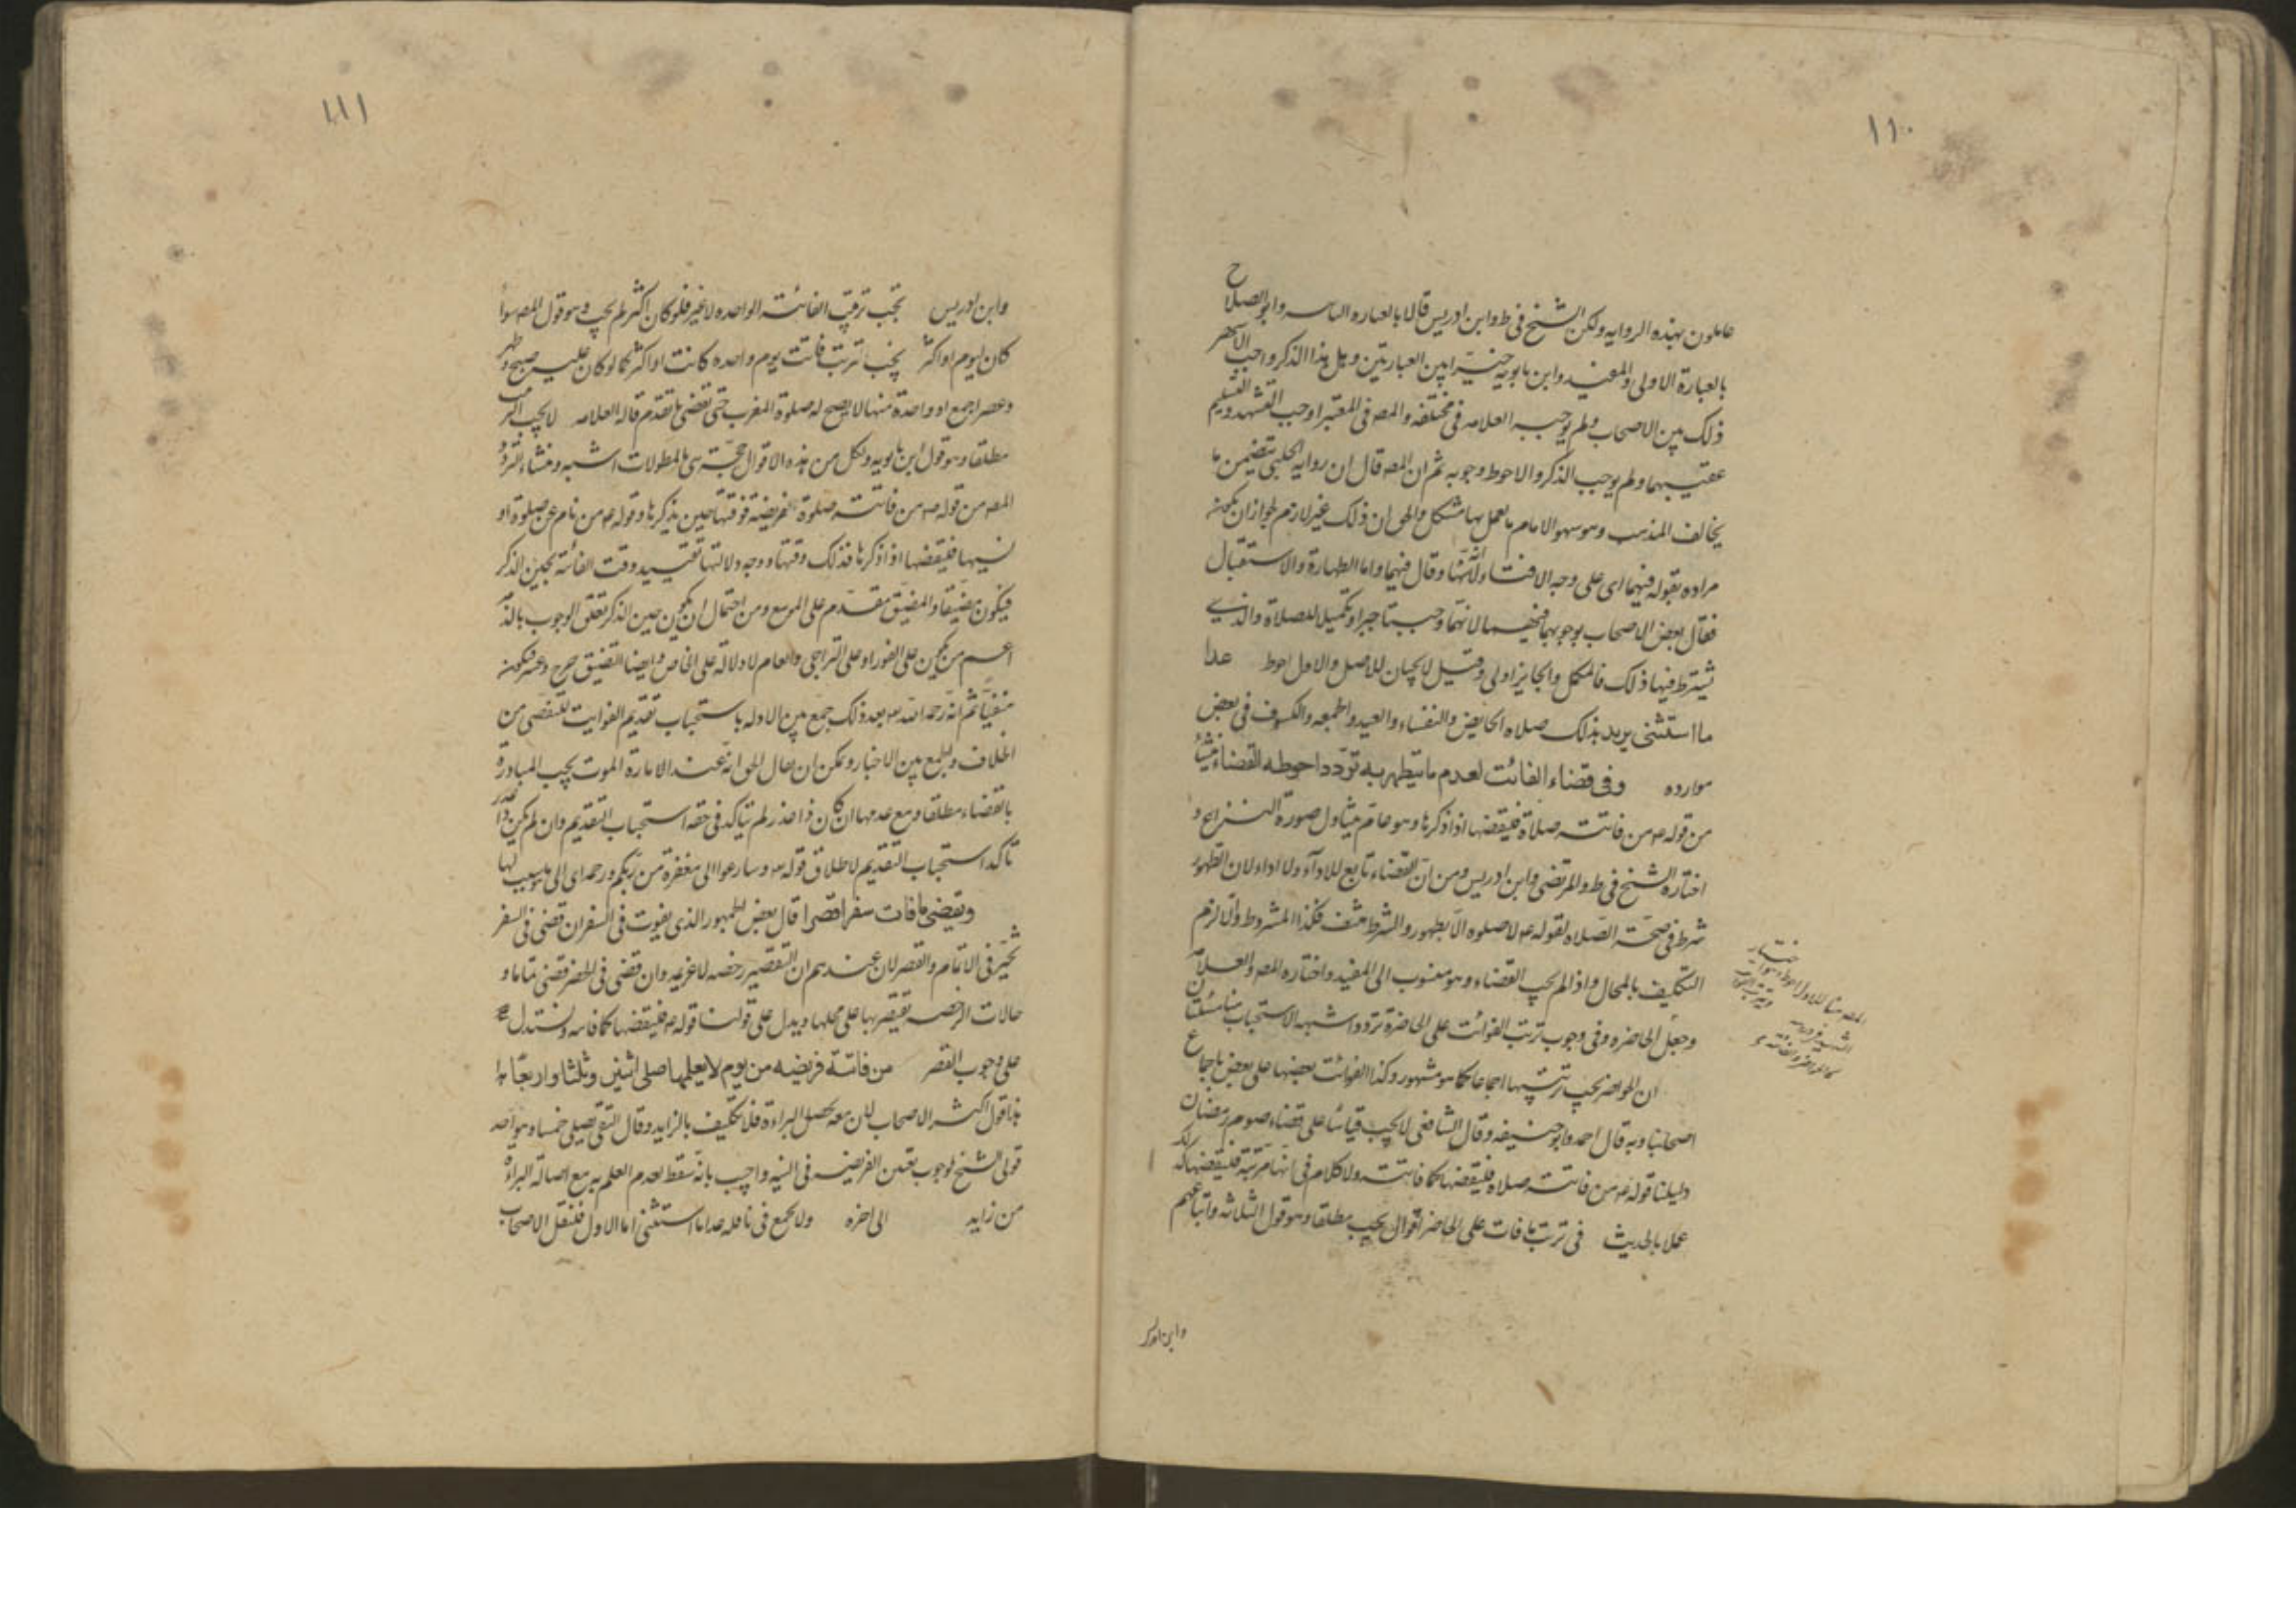 ١١٠
عاملون بهذه الروايه ولكن الشيخ فى ط وابن ادريس قالا بالعباره وابو الصلاح
بالعبارة الاولى والمفيد وابن بابويه بين العبارتين وهل هذا الذكر واجب
ذلك بين الاصحاب ولم يوجبه العلامه فى مختلفه والمص فى المعتبر اوجب التشهد والتسليم
عقيبهما ولم يوجب الذكر والاحوط وجوبه ثم ان المص قال ان رواية الحلبى تتضمن ما
يخالف المذهب وهو سهو الامام والعمل بها مشكل والحق ان ذلك غير لازم لجواز ان يكون
مراده بقوله فيهما اى على وجه الافتاء وقال فيهما واما الطهارة والاستقبال
فقال بعض الاصحاب بوجوبهما فيهما لانهما وجبتا جبرا وتكميلا للصلاة والذى
يشترط فيها ذلك فالمكمل والجابر اولى وقيل لا يجبان للاصل والاول احوط عدا
ما استثنى يريد بذلك صلاه الحايض والنفساء والعيد والجمعه والكسوف فى بعض
موارده وفى قضاء الفائت لعدم ما يتطهر به تردد احوطه القضاء
من قوله ع من فاتته صلاة فليقضها اذا ذكرها وهو عام يتناول صورة النزاع و
اختاره الشيخ فى ط والمرتضى وابن ادريس ومن ان القضاء تابع للاداء ولا اداء لان الطهور
شرط فى صحة الصلاه لقوله ع لا صلوه الا بطهور والشرط منتف فكذا المشروط والا لزم
التكليف بالمحال واذا لم يجب القضاء وهو منسوب الى المفيد واختاره المص والعلامه
وجعل الحاضره وفى وجوب ترتب الفوائت على الحاضرة تردد اشبهه الاستحباب هنا مسئلتان
ان الحواضر يجب ترتيبها اجماعا كما هو مشهور وكذا الفوائت بعضها على بعض باجماع
اصحابنا وبه قال احمد وابو حنيفه وقال الشافعى لا يجب قياسا على قضاء صوم رمضان
دليلنا قوله ع من فاتته صلاه فليقضها كما فاتته ولا كلام فى انها مرتبة فليقضها كذلك
عملا بالحديث فى ترتب ما فات على الحاضر اقوال يجب مطلقا وهو قول الثلاثه واتباعهم
وابن ادريس
١١١
وابن ادريس تجب ترتيب الفائته الواحده لا غير فلو كان اكثر لم يجب وهو قول المص سواء
كان ليوم او اكثر يجب ترتب فائت يوم واحده كانت او اكثر كما لو كان عليه صبح وظهر
وعصر اجمع او واحدة منها لا يصح له صلوة المغرب حتى تقضى ما تقدم قاله العلامه لا يجب الترتيب
مطلقا وهو قول ابن بابويه ولكل من هذه الاقوال حجة هى بالمطولات اشبه ومنشاء التردد
المص من قوله ع من فاتته صلوة فريضة فوقتها حين يذكرها وقوله ع من نام عن صلوة او
نسيها فليقضها اذا ذكرها فذلك وقتها ووجه دلالتها تقييد وقت الفائته بحين الذكر
فيكون مضيقا والمضيق مقدم على الموسع ومن احتمال ان يكون حين الذكر تعلق الوجوب بالذمه
اعم من يكون على الفور او على التراخى والعام لا دلالة له على الخاص وايضا التضيق حرج وعسر فيكون
منفيا ثم انه رحمه الله بعد ذلك جمع بين الادله باستحباب تقديم الفوايت للتفصى من
الخلاف والجمع بين الاخبار ويمكن ان يقال الحق انه عند الامارة الموت يجب المبادرة
بالقضاء مطلقا ومع عدمها ان كان ذا عذر لم يتاكد فى حقه استحباب التقديم وان لم يكن ذا عذر
تاكد استحباب التقديم لاطلاق قوله تع وسارعوا الى مغفرة من ربكم ورحمه اى الى ما يسببها
ويقضى ما فات سفرا قصرا قال بعض الجمهور الذى يفوت فى السفر ان قضى فى السفر
تخير فى الاتمام والقصر لان عندهم ان التقصير رخصه لا عزيمه وان قضى فى الحضر قضى تماما و
حالات الرخصه يقتصر بها على محلها ويدل على قولنا قوله ع فليقضها كما فاتته ونستدل
على وجوب القصر من فاتته فريضه من يوم لا يعلمها صلى اثنين وثلثا واربعا
هذا قول اكثر الاصحاب لان معه يحصل البراءة فلا تكليف بالزايد وقال التقى يصلى خمسا وهو احد
قولى الشيخ لوجوب تعين الفريضه فى النيه واجيب بانه سقط لعدم العلم به مع اصالة البراءة
من زايد الى اخره ولا يجمع فى نافله عدا ما استثنى اما الاول فلنقل الاصحاب